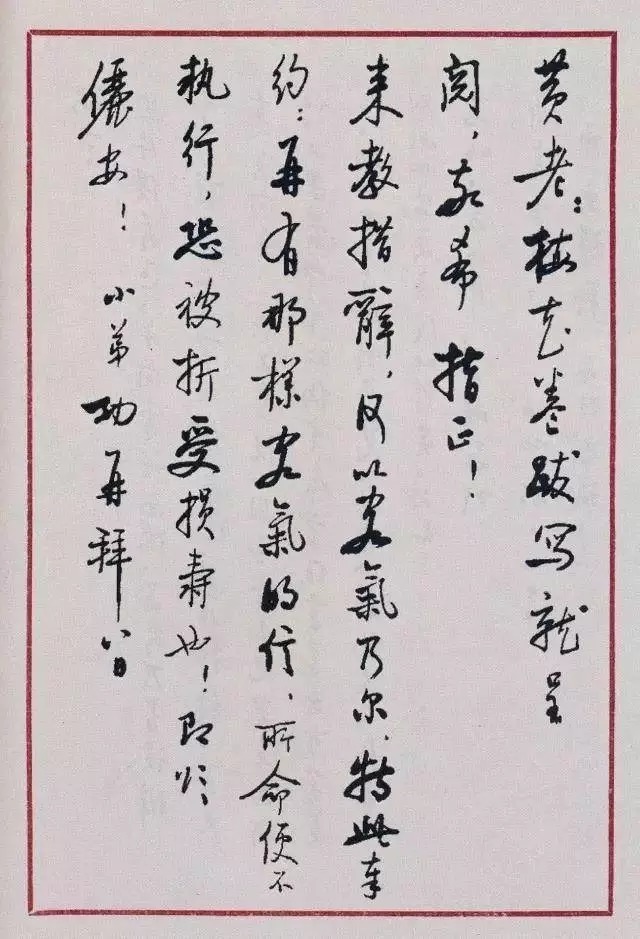 黄老：梅花卷跋写就呈
阅，敬希指正！
来教措辭，何以客氣乃尔，特此奉
约：再有那様客氣的信，所命便不
执行，恐被折受损寿也！即颂
儷安！ 小弟功再拜 八日